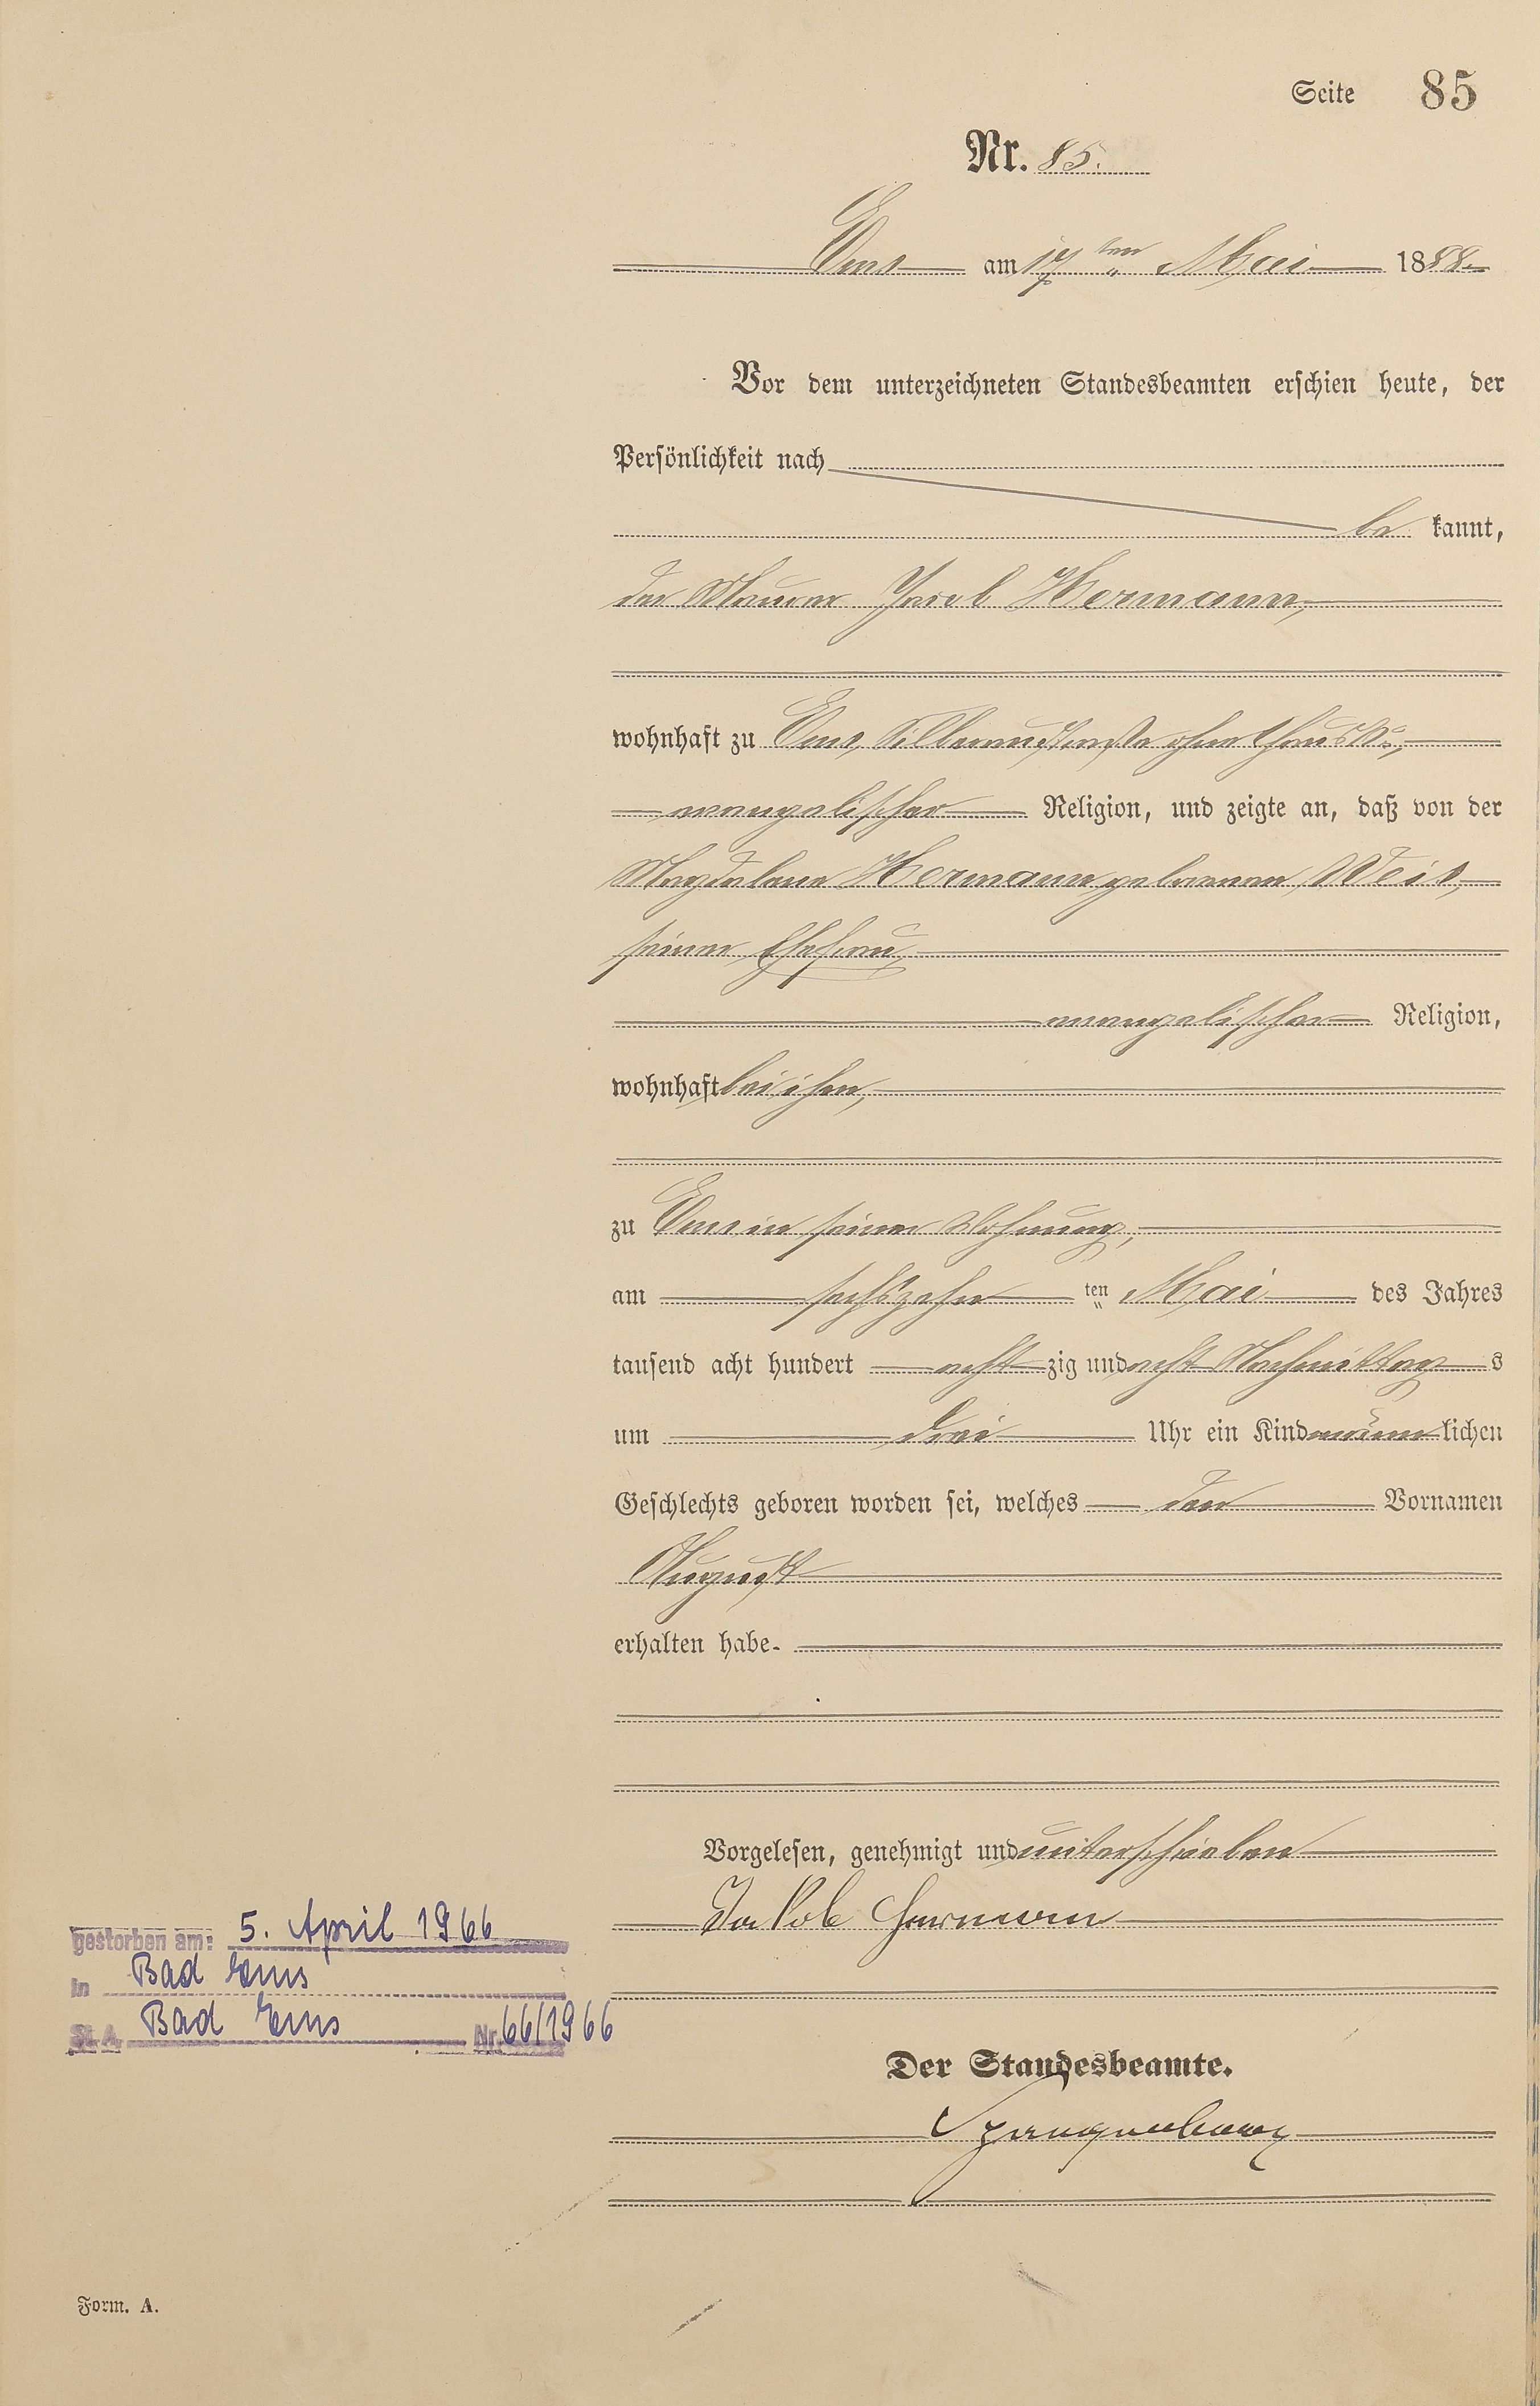 Seite 85
Nr. 85.
Ems am 17ten Mai 1888.
Vor dem unterzeichneten Standesbeamten erschien heute, der
Persönlichkeit nach
be kannt,
der Maurer Jacob Hermann,
wohnhaft zu Ems, Silberaustraße ohne Haus No,
evangelischer Religion, und zeigte an, daß von der
Magdalene Hermann geborenen Weis,
seiner Ehefrau,
evangelischer Religion,
wohnhaft bei ihm,
zu Ems in seiner Wohnung,
am sechszehn ten Mai des Jahres
tausend acht hundert acht zig und acht Nachmittag s
um drei Uhr ein Kind männ lichen
Geschlechts geboren worden sei, welches den Vornamen
August
erhalten habe.
Vorgelesen, genehmigt und unterschrieben
Jakob Hermann
gestorben am: 5. April 1966
in Bad Ems
St. A. Bad Ems Nr. 66/1966
Der Standesbeamte.
Spangenberg
Form. A.